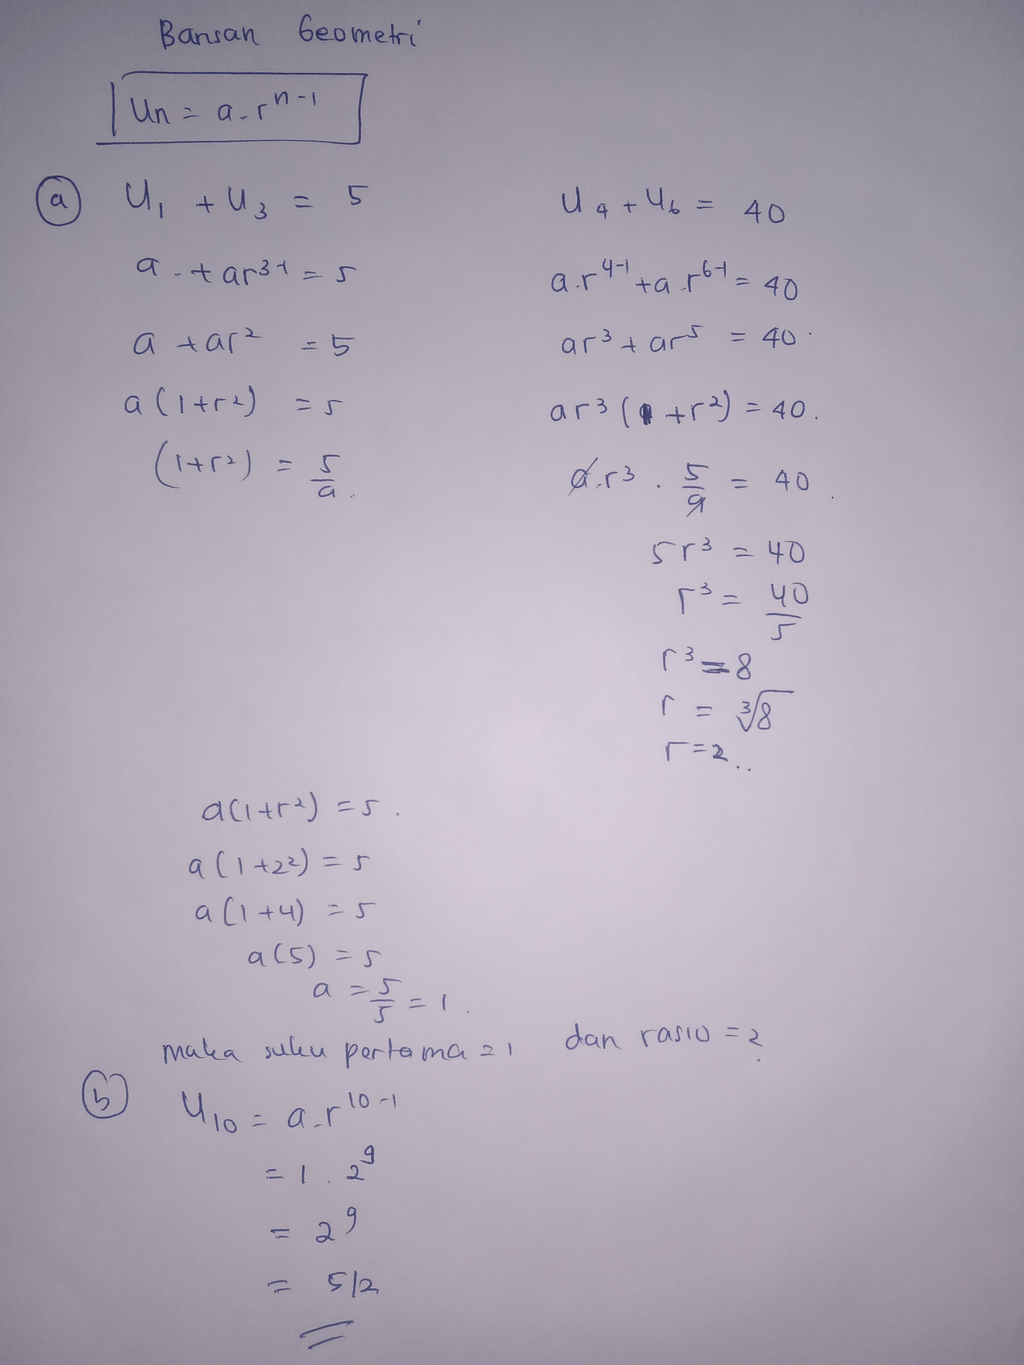 Barisan Geometri
Un = a.r^n-1
(a) U₁ + U₃ = 5
a + ar^3-1 = 5
a + ar² = 5
a(1+r²) = 5
(1+r²) = 5/a
U₄ + U₆ = 40
a.r^4-1 + a.r^6-1 = 40
ar³ + ar⁵ = 40
ar³(1+r²) = 40.
a.r³ . 5/a = 40
5r³ = 40
r³ = 40/5
r³ = 8
r = ³√8
r = 2..
a(1+r²) = 5.
a(1+2²) = 5
a(1+4) = 5
a(5) = 5
a = 5/5 = 1.
maka suku pertama = 1 dan rasio = 2.
(b) U₁₀ = a.r^10-1
= 1 . 2⁹
= 2⁹
= 512